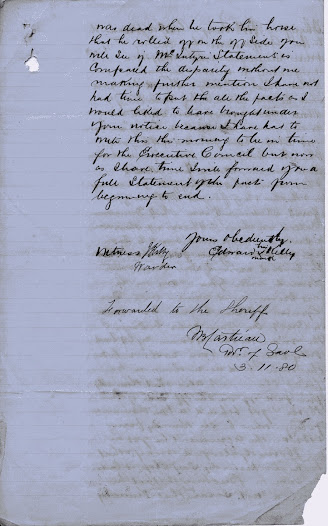 was dead when he took him home
that he rolled off on the off side you
will see if McIntyre Statement is
Compared the disparity without me
making further mention I have not
had time to put the all the facts as I
would liked to have brought under
your notice because I have has to
write this this morning to be in time
for the Executive Council but now
as I have time I will forward you a
full Statement of the facts from
beginning to end.
Yours obediently
his
Witness
Edward X Kelly
Warder
mark
Forwarded to the Sheriff
Gov. of Gaol
3.11.80